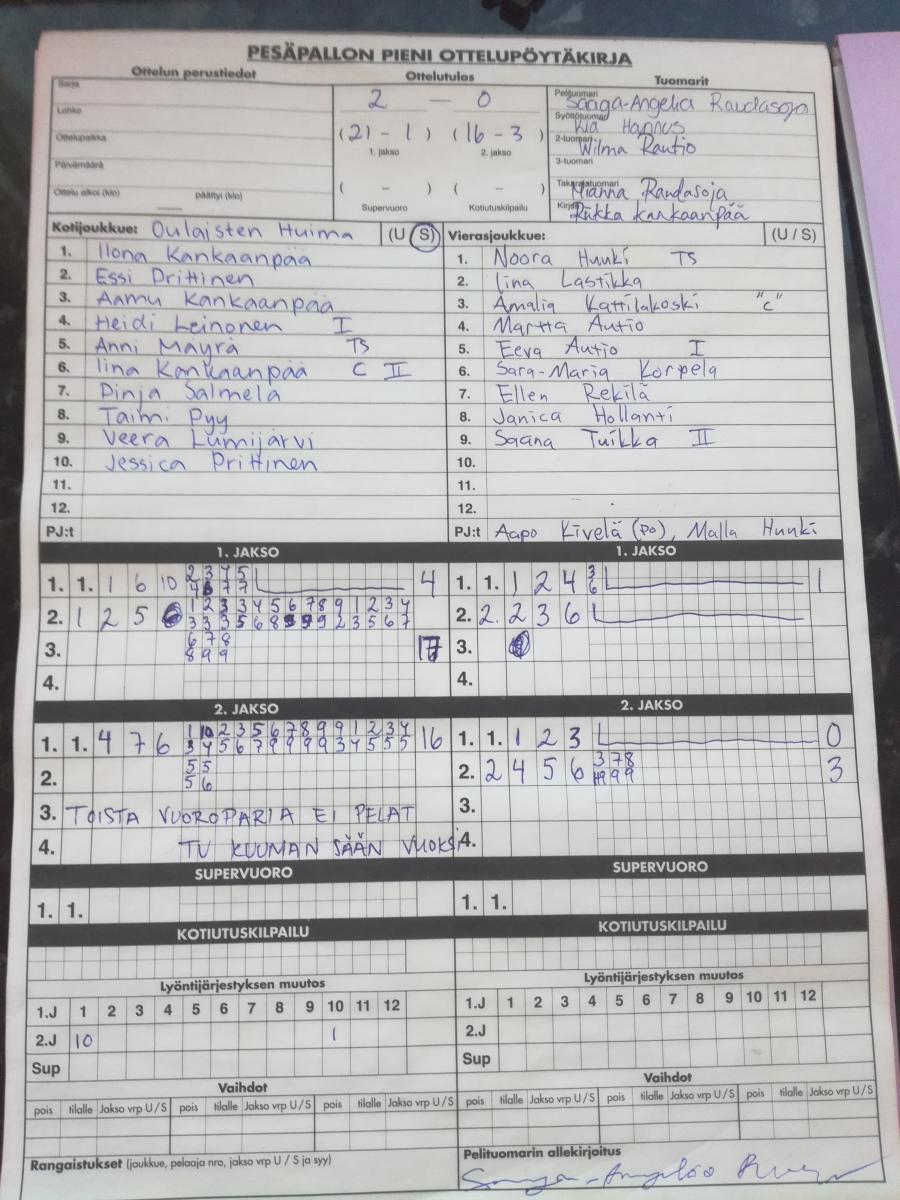 PESÄPALLON PIENI OTTELUPÖYTÄKIRJA
Ottelun perustiedot
Ottelutulos
Tuomarit
Sarja
Lohko
Ottelupaikka
Päivämäärä
Ottelu alkoi (klo) päättyi (klo)
2 — 0
(21 - 1) (16 - 3)
1. jakso 2. jakso
( - ) ( - )
Supervuoro Kotiutuskilpailu
Pelituomari Saaga-Angelia Raudasoja
Syöttötuomari Kia Hannus
2-tuomari Wilma Rautio
3-tuomari
Takarajatuomari Minna Raudasoja
Kirjuri Riikka Kankaanpää
Kotijoukkue: Oulaisten Huima (U / S)
1. Ilona Kankaanpää
2. Essi Prittinen
3. Aamu Kankaanpää
4. Heidi Leinonen I
5. Anni Mäyrä TS
6. Iina Kankaanpää C II
7. Pinja Salmela
8. Taimi Pyy
9. Veera Lumijärvi
10. Jessica Prittinen
11.
12.
PJ:t
Vierasjoukkue: (U / S)
1. Noora Huuki TS
2. Iina Lastikka
3. Amalia Kattilakoski "C"
4. Martta Autio
5. Eeva Autio I
6. Sara-Maria Korpela
7. Ellen Rekilä
8. Janica Hollanti
9. Saana Tuikka II
10.
11.
12.
PJ:t Aapo Kivelä (PO), Malla Huuki
1. JAKSO
1. 1. 1 6 10 2 3 4 5 4
4 6 7 7
2. 1 2 5 1 2 3 3 4 5 6 7 8 9 1 2 3 4
3 3 3 5 6 8 9 9 9 2 3 5 6 7
3. 6 7 8 17
8 9 9
4.
1. JAKSO
1. 1. 1 2 4 3 1
6
2. 2. 2 3 6
3.
4.
2. JAKSO
1. 1. 4 7 6 1 10 2 3 5 6 7 8 9 9 1 2 3 4 16
3 4 5 6 7 9 9 9 9 3 4 5 5 5
2. 5 5
5 6
3. TOISTA VUOROPARIA EI PELAT
4. TU KUUMAN SÄÄN VUOKSI
2. JAKSO
1. 1. 1 2 3 0
2. 2 4 5 6 3 7 8 3
9 9
3.
4.
SUPERVUORO
1. 1.
SUPERVUORO
1. 1.
KOTIUTUSKILPAILU
KOTIUTUSKILPAILU
Lyöntijärjestyksen muutos
1.J 1 2 3 4 5 6 7 8 9 10 11 12
2.J 10 1
Sup
Lyöntijärjestyksen muutos
1.J 1 2 3 4 5 6 7 8 9 10 11 12
2.J
Sup
Vaihdot
pois tilalle Jakso vrp U / S pois tilalle Jakso vrp U / S pois tilalle Jakso vrp U / S
Vaihdot
pois tilalle Jakso vrp U / S pois tilalle Jakso vrp U / S pois tilalle Jakso vrp U / S
Rangaistukset (joukkue, pelaaja nro, jakso vrp U / S ja syy)
Pelituomarin allekirjoitus